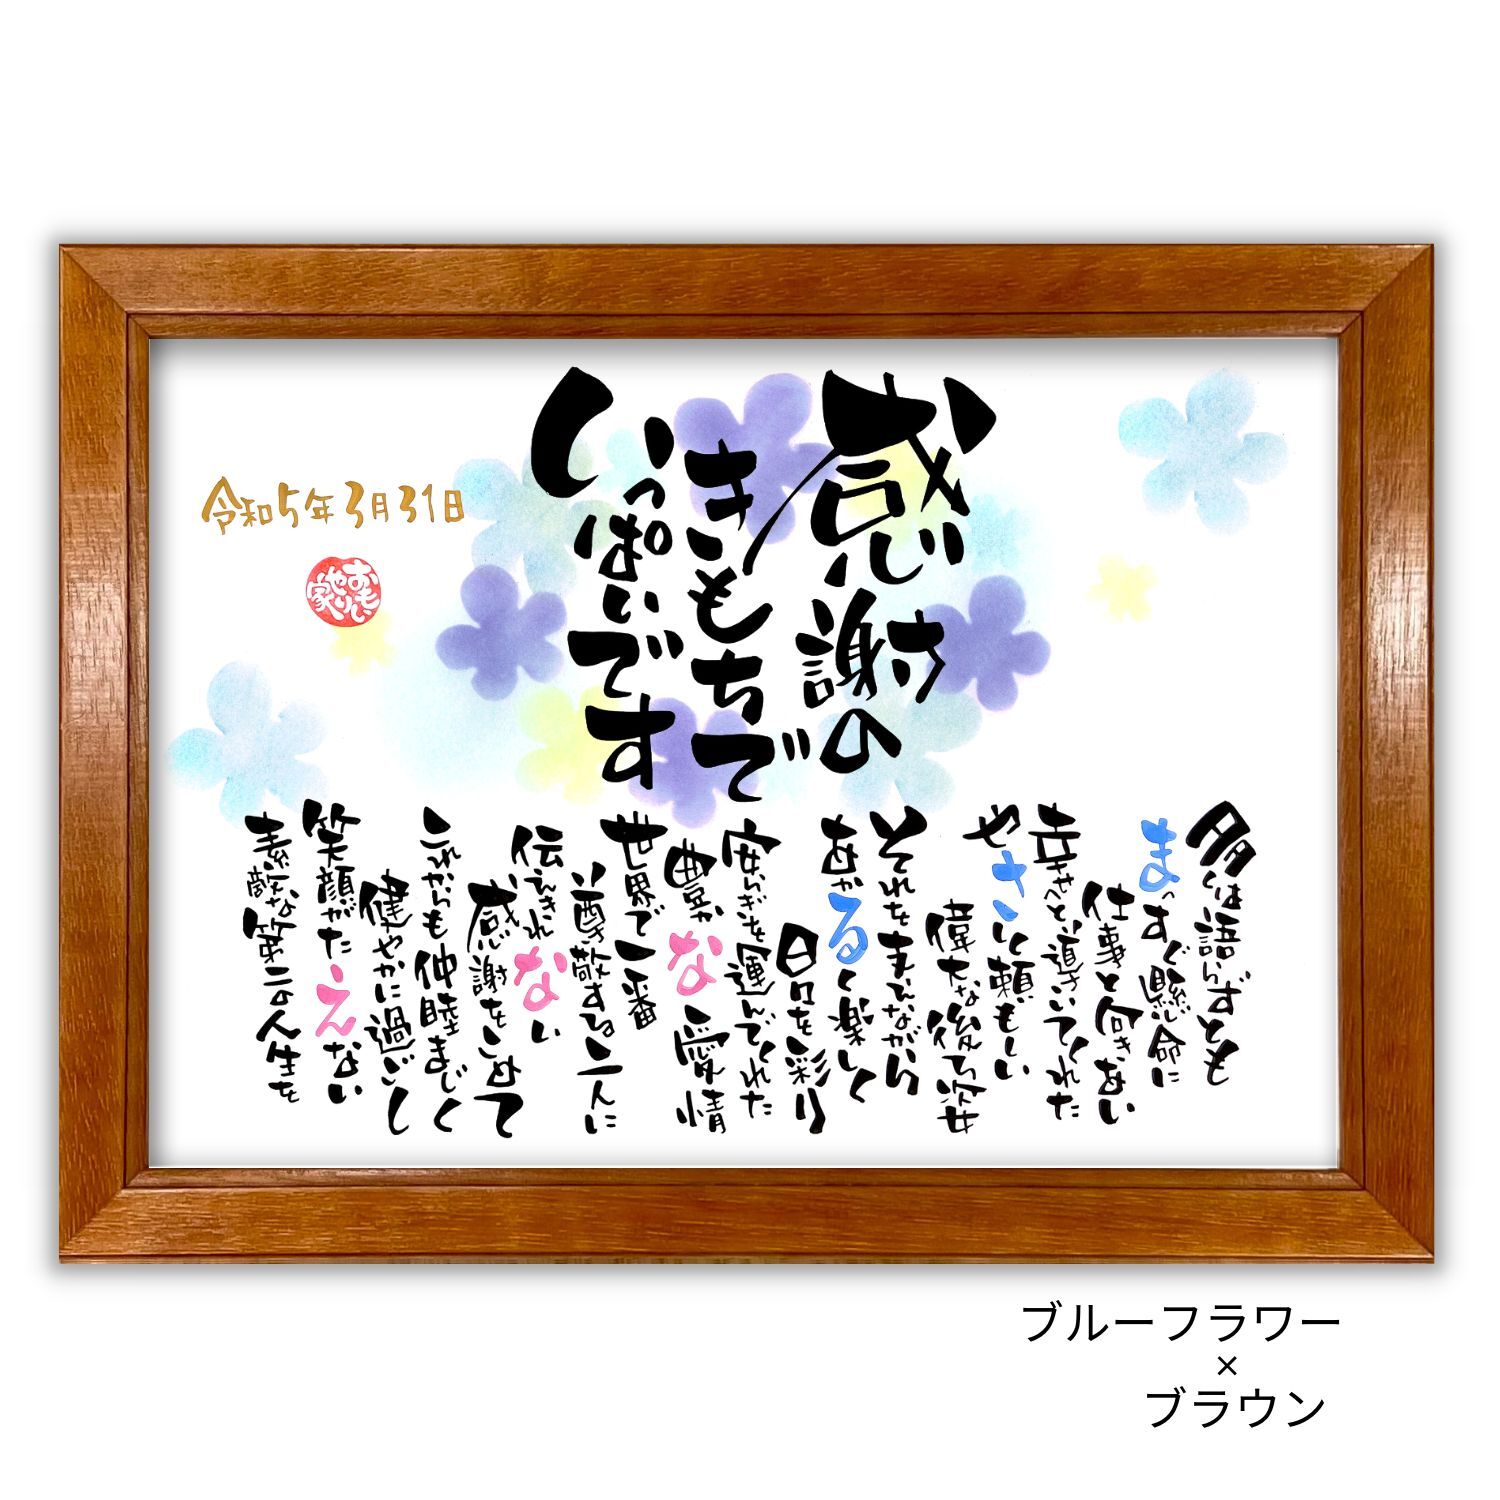 感謝の
きもちで
いっぱいです
多くは語らずとも
まっすぐ懸命に
仕事と向きあい
幸せへと導いてくれた
やさしく頼もしい
偉大な後ろ姿
それをまもりながら
あかるく楽しく
日々を彩り
安らぎを運んでくれた
豊かな愛情
世界で一番
尊敬する二人に
伝えきれない
感謝をこめて
これからも仲睦まじく
健やかに過ごし
笑顔がたえない
素敵な第二の人生を
令和5年3月31日
おもい
やり
家
ブルーフラワー
×
ブラウン